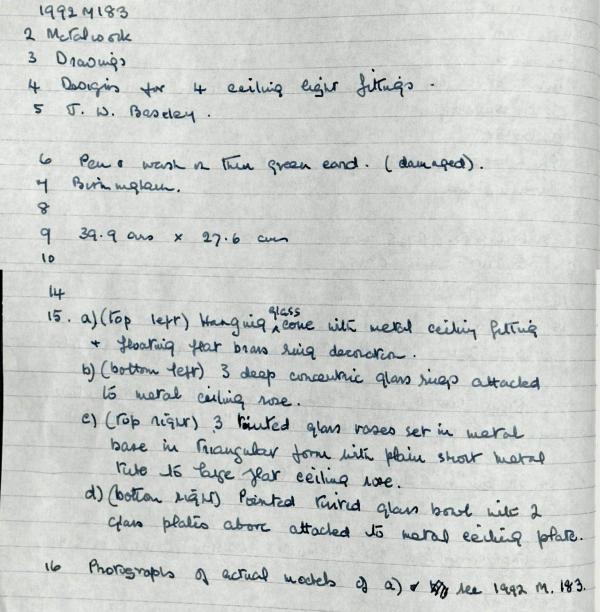 1992 M183
2 Metalwork
3 Drawings
4 Designs for 4 ceiling light fittings.
5 J. W. Beseley.
6 Pen & wash on thin green card. (damaged).
7 Birmingham.
8
9 39.9 cms x 27.6 cms
10
14
15. a) (top left) Hanging glass cone with metal ceiling fitting
+ floating flat brass ring decoration.
b) (bottom left) 3 deep concentric glass rings attached
to metal ceiling rose.
c) (top right) 3 tinted glass vases set in metal
base in triangular form with plain short metal
tube to large flat ceiling rose.
d) (bottom right) Pointed glass bowl with 2
glass plates above attached to metal ceiling plate.
16 Photographs of actual models of a) & see 1992 M. 183.